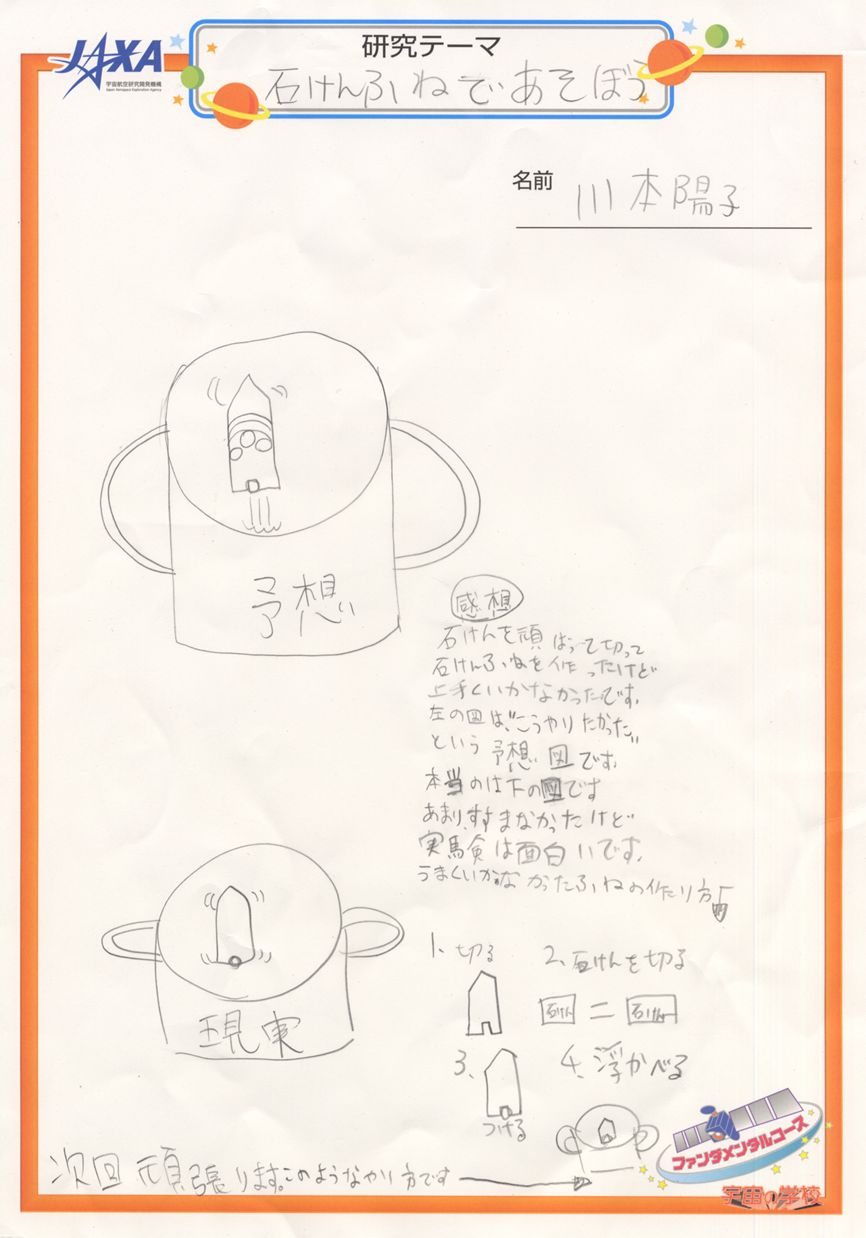 JAXA
宇宙航空研究開発機構
Japan Aerospace Exploration Agency
研究テーマ
石けんふねであそぼう
名前
川本陽子
予想
感想
石けんを頑ばって切って
石けんふねを作ったけど
上手くいかなかったです。
左の図は、"こうやりたかった"
という予想図です。
本当のは下の図です
あまりすすまなかったけど
実験は面白いです。
うまくいかなかったふねの作り方
現実
1. 切る
2. 石けんを切る
石けん 二 石けん
3.
つける
4. 浮かべる
次回頑張ります。このようなやり方です
ファンダメンタルコース
宇宙の学校